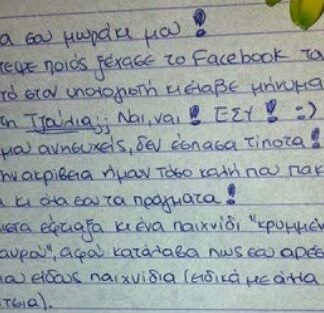 α σου μωράκι μου!
τεψε ποιός ξέχασε το Facebook τα
τό στον υπολογιστή κι έλαβε μήνυμα
τη Ιταλία;; Ναι, ναι! ΕΣΥ! :-)
μαι ανησυχείς, δεν έσπασα τίποτα!
ην ακρίβεια ήμουν τόσο καλή που πακ
α κι όλα σου τα πράγματα!
ιστα έφτιαξα κι ένα παιχνίδι "κρυμμέν
αυρού", αφού κατάλαβα πως σου αρέσ
του είδους παιχνίδια (ειδικά με
τσια).